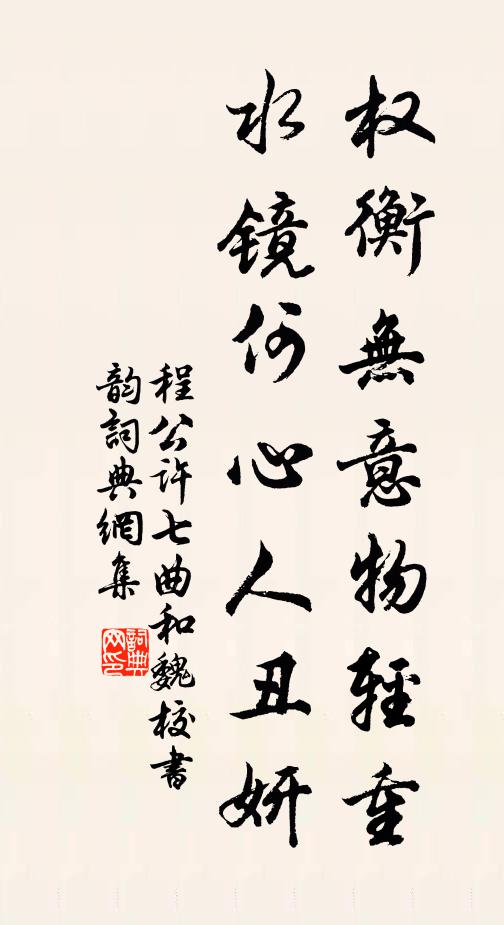 权衡無意物輕重
水鏡何心人丑妍
程公许七曲和魏校書
韵詞典網集
詞典网印